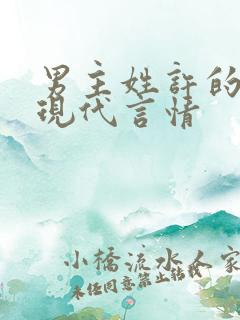 男主姓許的
現代言情
小橋流水人家
未经同意禁止转载